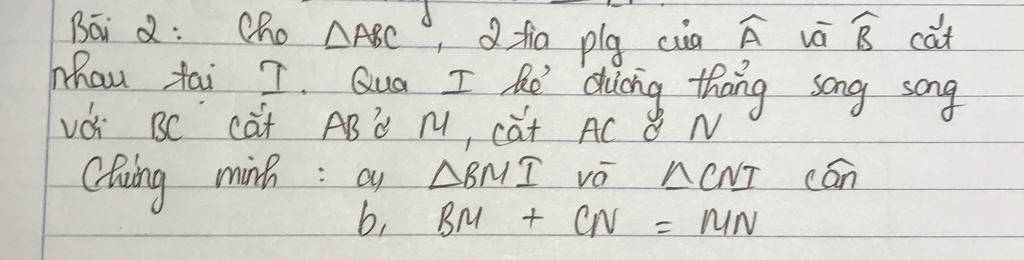 Bài 2: Cho ΔABC, 2 tia plg của Â và B̂ cắt
nhau tại I. Qua I kẻ đường thẳng song song
với BC cắt AB ở M, cắt AC ở N
Chứng minh: a, ΔBMI và ΔCNI cân
b, BM + CN = MN